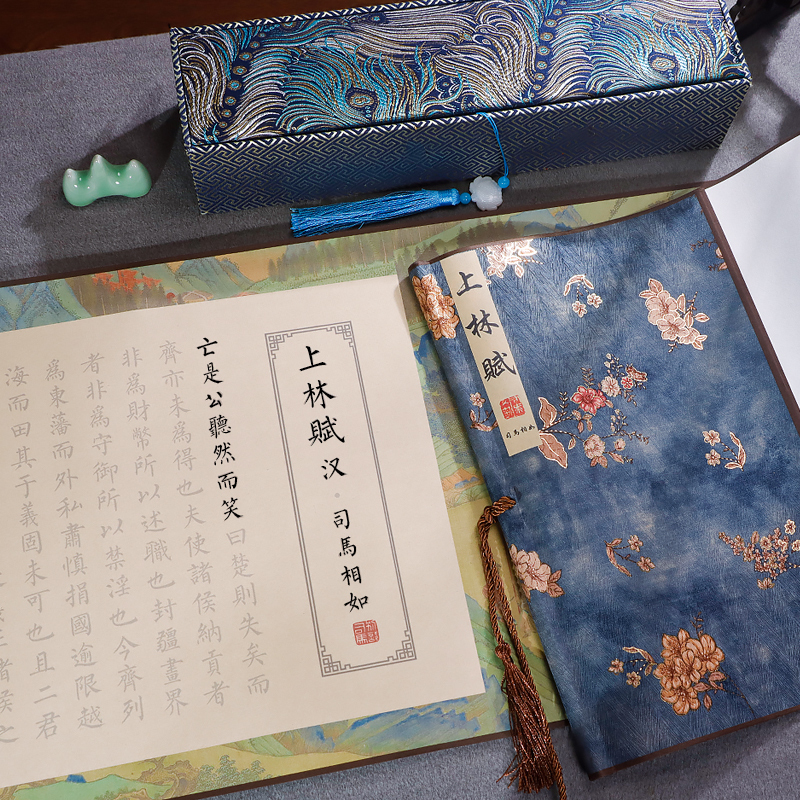 上林賦
司馬相如
上林賦 汉·司馬相如
亡是公聽然而笑曰楚則失矣而
齊亦未為得也夫使諸侯納貢者
非為財幣所以述職也封疆畫界
者非為守御所以禁淫也今齊列
為東藩而外私肅慎捐國逾限越
海而田其于義固未可也且二君
諸侯之